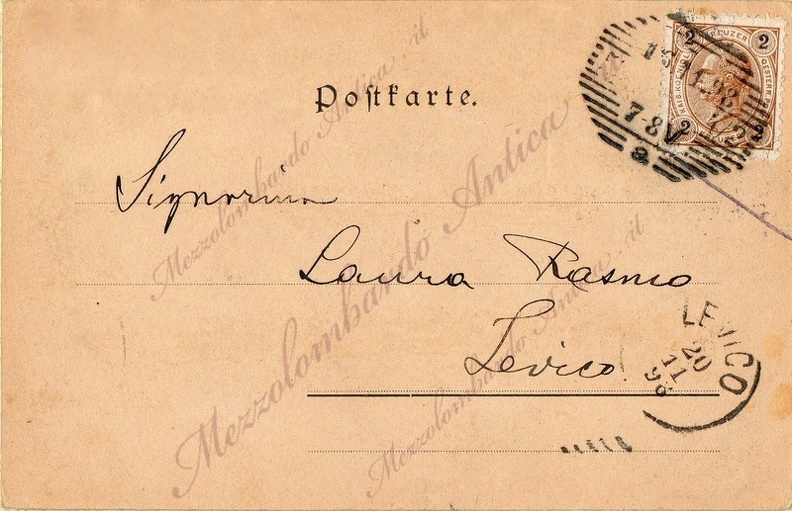 Postkarte.
2 KREUZER 2
2 2
7 8 V
a
Signorina
Laura Rasmo
Levico.
LEVICO
20
11
98
Mezzolombardo Antica .it
Mezzolombardo Antica .it
Mezzolombardo Antica .it